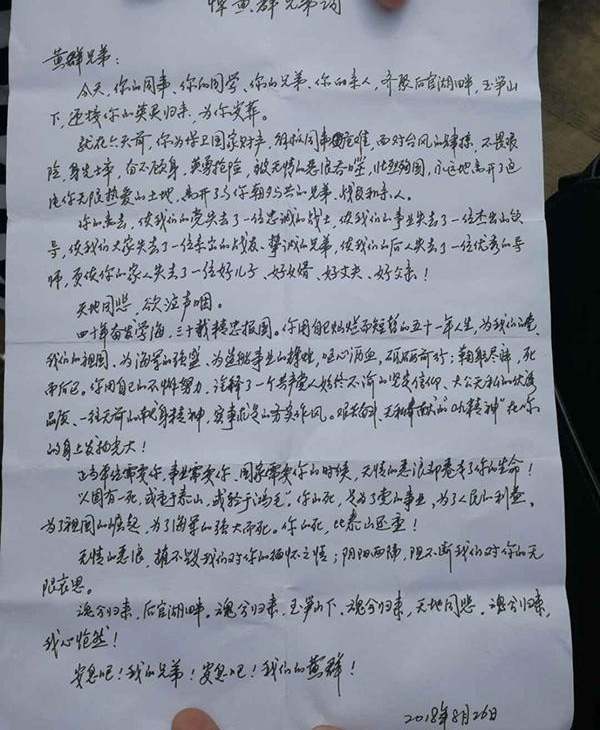 悼黄群兄弟词
黄群兄弟：
今天，你的同事、你的同学、你的兄弟、你的亲人，齐聚后官湖畔，玉笋山
下，迎接你的英灵归来，为你安葬。
就在六天前，你为保卫国家财产，组织同事抢险，面对台风的肆掠，不畏艰
险，身先士卒，奋不顾身，英勇抢险，被无情的恶浪吞噬，壮烈殉国，永远地离开了这
片你无限热爱的土地，离开了与你朝夕与共的兄弟、战友和亲人。
你的离去，使我们的党失去了一位忠诚的战士，使我们的事业失去了一位杰出的领
导，使我们大家失去了一位亲密的战友、挚诚的兄弟，使我们的后人失去了一位优秀的导
师，更使你的家人失去了一位好儿子、好女婿、好丈夫、好父亲！
天地同悲，欲泣声咽。
四十年奋发学海，三十载精忠报国。你用自己灿烂而短暂的五十一年人生，为我们的党、
我们的祖国、为海军的强盛、为造船事业的辉煌，呕心沥血，砥砺前行；鞠躬尽瘁，死
而后已。你用自己的不懈努力，诠释了一个共产党人始终不渝的坚定信仰、大公无私的优秀
品质、一往无前的献身精神，实事求是的务实作风。艰苦奋斗、无私奉献的“ 精神”在你
的身上发扬光大！
正当单位需要你，事业需要你、国家需要你的时候，无情的恶浪却卷走了你的生命！
“人固有一死，或重于泰山，或轻于鸿毛”。你的死，是为了党的事业、为了人民的利益、
为了祖国的崛起，为了海军的强大而死。你的死，比泰山还重！
无情的恶浪，摧不毁我们对你的缅怀之情；阴阳两隔，阻不断我们对你的无
限哀思。
魂兮归来，后官湖畔。魂兮归来，玉笋山下，魂兮归来，天地同悲。魂兮归来，
我心怆然！
安息吧！我的兄弟！安息吧！我们的黄群！
2018年8月26日